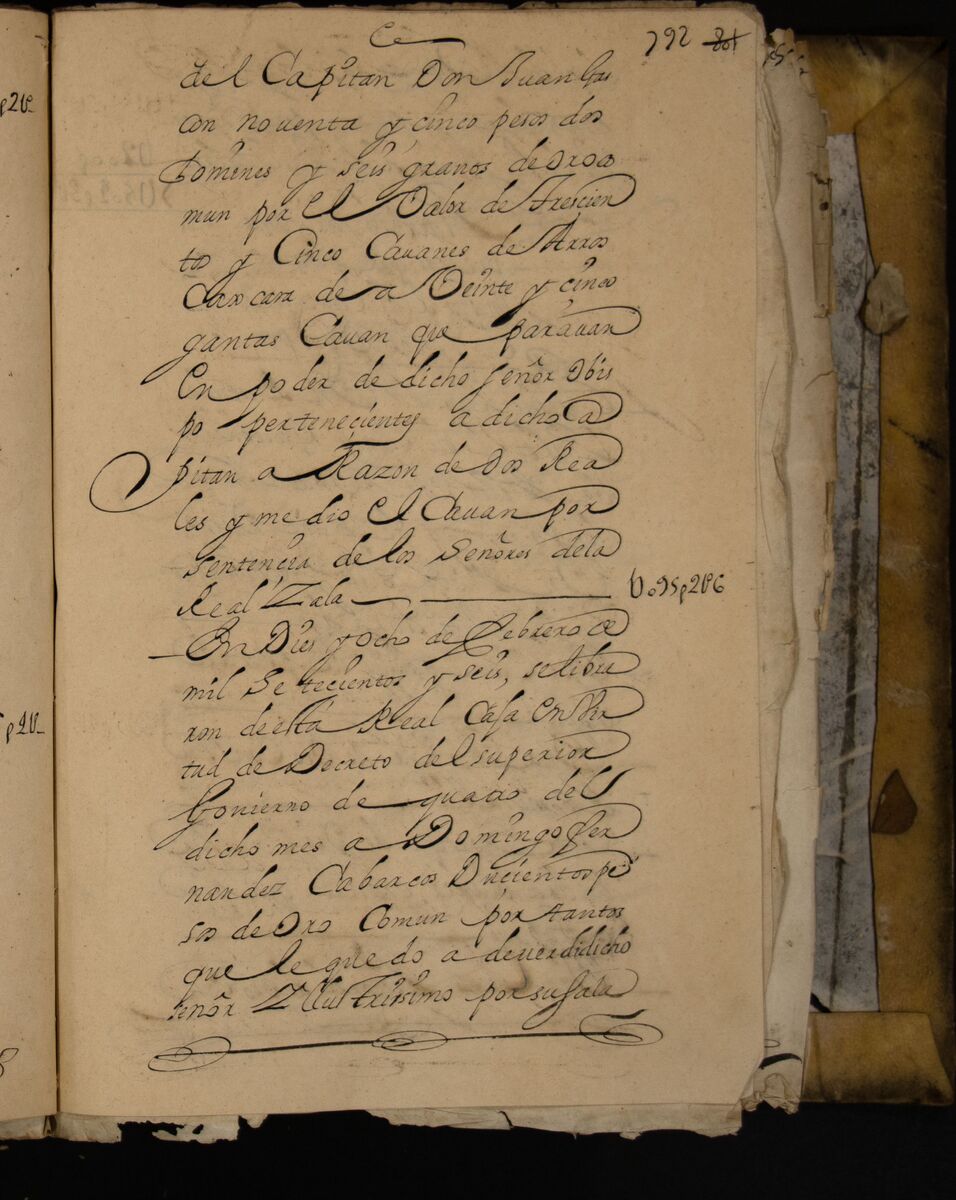 792 801
del Capitan Don Juan Gas
con noventa y cinco pesos dos
tomines y seis granos de oro co
mun por el Valor de Trescien
tos y Cinco Cavanes de Arros
Cascara de a Veinte y cinco
gantas Cavan que paravan
En poder de dicho señor Obis
po pertenecientes a dicho Ca
pitan a Razon de dos Rea
les y medio el Cavan por
sentencia de los Señores de la
Real Zala
Uo95p2t6
En Dies y ocho de Febrero de
mil Setecientos y seis, se libra
ron de esta Real Casa En Vir
tud de Decreto del superior
Govierno de quatro del
dicho mes a Domingo Fer
nandez Cabarcos Ducientos pe
sos de Oro Comun por tantos
que le quedo a dever dicho
señor Yllustrisimo por su sala